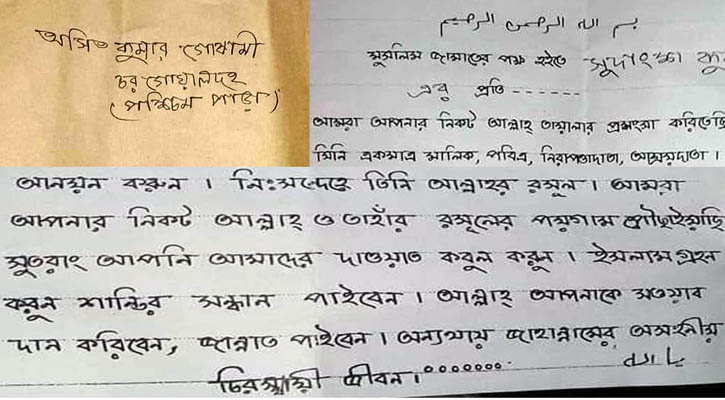 অসিত কুমার গোস্বামী
চর গোয়ালদহ
(পশ্চিম পাড়া)
بسم الله الرحمن الرحيم
মুসলিম জামাতের পক্ষ হইতে সুধাংশু কু
এর প্রতি ------
আমরা আপনার নিকট আল্লাহ্ তায়ালার প্রশংসা করিতেছি
যিনি একমাত্র মালিক, পবিত্র, নিরাপত্তাদাতা, আশ্রয়দাতা ।
আনয়ন করুন । নিঃসন্দেহে তিনি আল্লাহর রসূল । আমরা
আপনার নিকট আল্লাহ্ ও তাহাঁর রসূলের পয়গাম পৌঁছাইয়াছি
সুতরাং আপনি আমাদের দাওয়াত কবুল করুন । ইসলাম গ্রহন
করুন শান্তির সন্ধান পাইবেন । আল্লাহ্ আপনাকে সওয়াব
দান করিবেন, জান্নাত পাইবেন । অন্যথায় জাহান্নামের অসহনীয়
চিরস্থায়ী জীবন ।